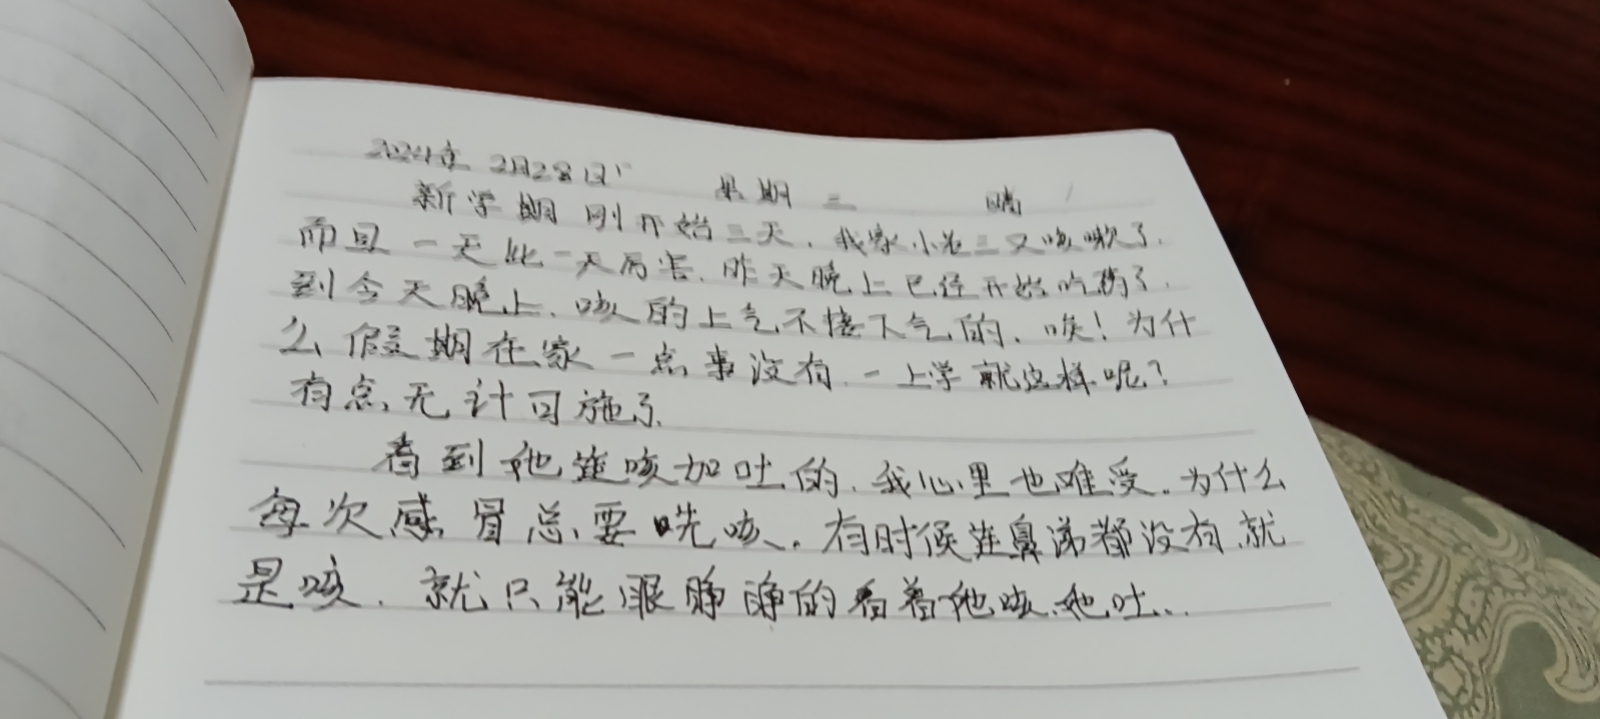 2024年 2月28日 星期三 晴
新学期刚开始三天，我家小老三又咳嗽了，
而且一天比一天厉害，昨天晚上已经开始吃药了，
到今天晚上，咳的上气不接下气的，唉！为什
么假期在家一点事没有，一上学就这样呢？
有点无计可施了。
看到他连咳加吐的，我心里也难受。为什么
每次感冒总要咣咳，有时候连鼻涕都没有，就
是咳，就只能眼睁睁的看着他咳，他吐...